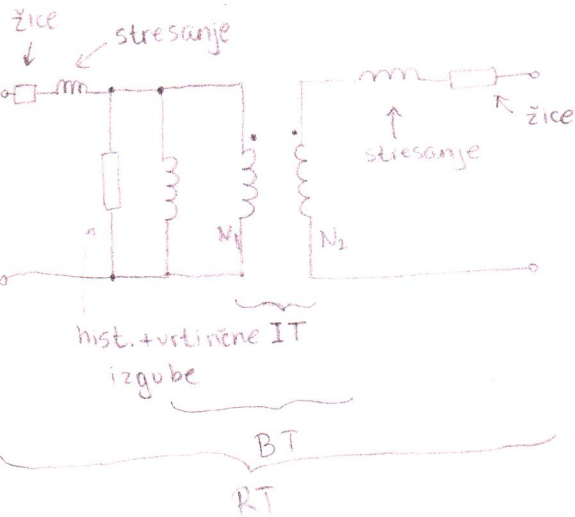 žice
stresanje
žice
stresanje
N1
N2
hist. + vrtinčne
izgube
IT
BT
RT